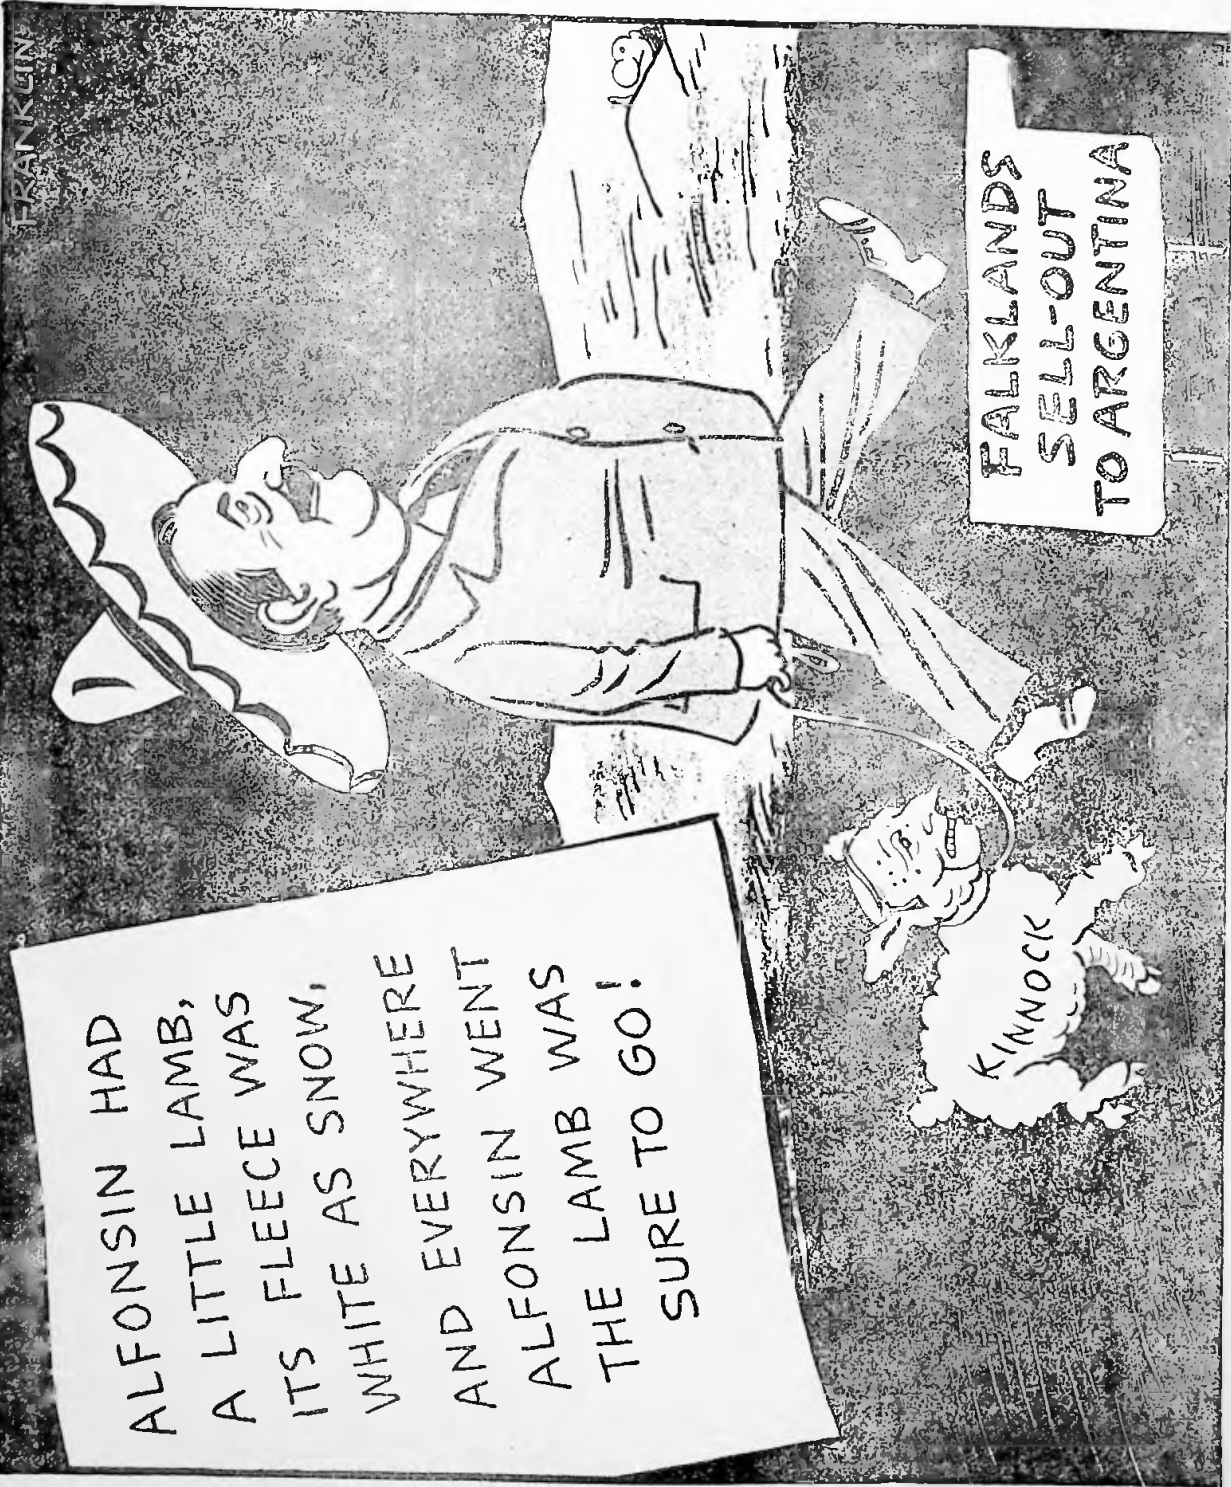 ALFONSIN HAD
A LITTLE LAMB,
ITS FLEECE WAS
WHITE AS SNOW,
AND EVERYWHERE
ALFONSIN WENT
THE LAMB WAS
SURE TO GO!
KINNOCK
FALKLANDS
SELL-OUT
TO ARGENTINA
FRANKLIN